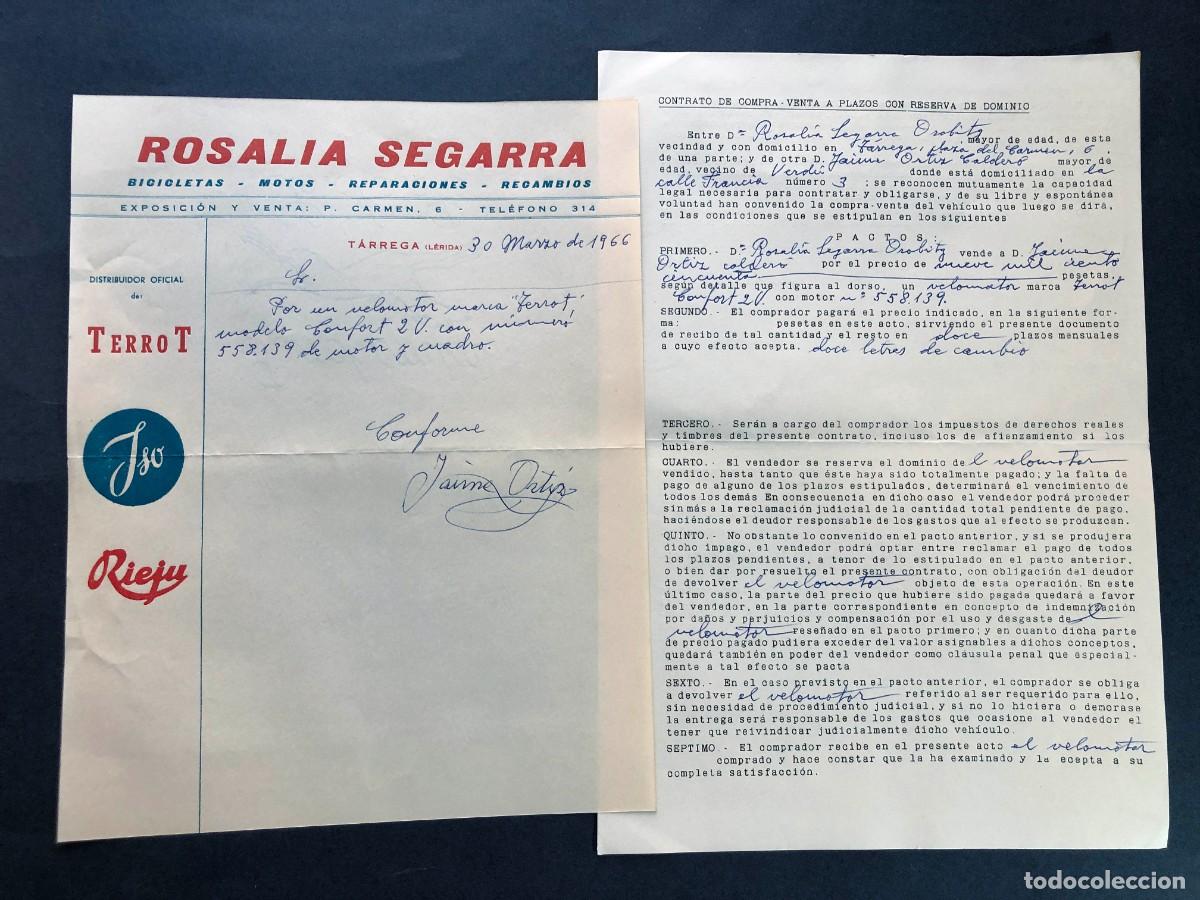 ROSALIA SEGARRA
BICICLETAS - MOTOS - REPARACIONES - RECAMBIOS
EXPOSICIÓN Y VENTA: P. CARMEN, 6 - TELÉFONO 314
TÁRREGA (LÉRIDA) 30 Marzo de 1966
DISTRIBUIDOR OFICIAL
de:
TERROT
Iso
Rieju
Sr.
Por un velomotor marca "Terrot",
modelo Confort 2 V. con número
558.139 de motor y cuadro.
Conforme
Jaime Ortiz
CONTRATO DE COMPRA-VENTA A PLAZOS CON RESERVA DE DOMINIO
Entre Dª Rosalía Segarra Orobitg mayor de edad, de esta
vecindad y con domicilio en Tarrega, plaza del Carmen, 6.
de una parte; y de otra D. Jaime Ortiz Calderó mayor de
edad, vecino de Verdú donde está domiciliado en la
calle Francia número 3 ; se reconocen mutuamente la capacidad
legal necesaria para contratar y obligarse, y de su libre y espontánea
voluntad han convenido la compra-venta del vehículo que luego se dirá,
en las condiciones que se estipulan en los siguientes
P A C T O S :
PRIMERO.- Dª Rosalía Segarra Orobitg vende a D. Jaime
Ortiz calderó por el precio de nueve mil ciento
cincuenta pesetas,
según detalle que figura al dorso, un velomotor marca Terrot
Confort 2 V. con motor nº 558139.
SEGUNDO.- El comprador pagará el precio indicado, en la siguiente for-
ma: pesetas en este acto, sirviendo el presente documento
de recibo de tal cantidad y el resto en doce plazos mensuales
a cuyo efecto acepta. doce letres de cambio
TERCERO.- Serán a cargo del comprador los impuestos de derechos reales
y timbres del presente contrato, incluso los de afianzamiento si los
hubiere.
CUARTO.- El vendedor se reserva el dominio de l velomotor
vendido, hasta tanto que éste haya sido totalmente pagado; y la falta de
pago de alguno de los plazos estipulados, determinará el vencimiento de
todos los demás En consecuencia en dicho caso el vendedor podrá proceder
sin más a la reclamación judicial de la cantidad total pendiente de pago,
haciéndose el deudor responsable de los gastos que al efecto se produzcan.
QUINTO.- No obstante lo convenido en el pacto anterior, y si se produjera
dicho impago, el vendedor podrá optar entre reclamar el pago de todos
los plazos pendientes, a tenor de lo estipulado en el pacto anterior,
o bien dar por resuelto el presente contrato, con obligación del deudor
de devolver el velomotor objeto de esta operación. En este
último caso, la parte del precio que hubiere sido pagada quedará a favor
del vendedor, en la parte correspondiente en concepto de indemnización
por daños y perjuicios y compensación por el uso y desgaste de l
velomotor reseñado en el pacto primero; y en cuanto dicha parte
de precio pagado pudiera exceder del valor asignables a dichos conceptos,
quedará también en poder del vendedor como cláusula penal que especial-
mente a tal efecto se pacta
SEXTO.- En el caso previsto en el pacto anterior, el comprador se obliga
a devolver el velomotor referido al ser requerido para ello,
sin necesidad de procedimiento judicial, y si no lo hiciera o demorase
la entrega será responsable de los gastos que ocasione al vendedor el
tener que reivindicar judicialmente dicho vehículo.
SEPTIMO.- El comprador recibe en el presente acto el velomotor
comprado y hace constar que la ha examinado y la acepta a su
completa satisfacción.
todocoleccion